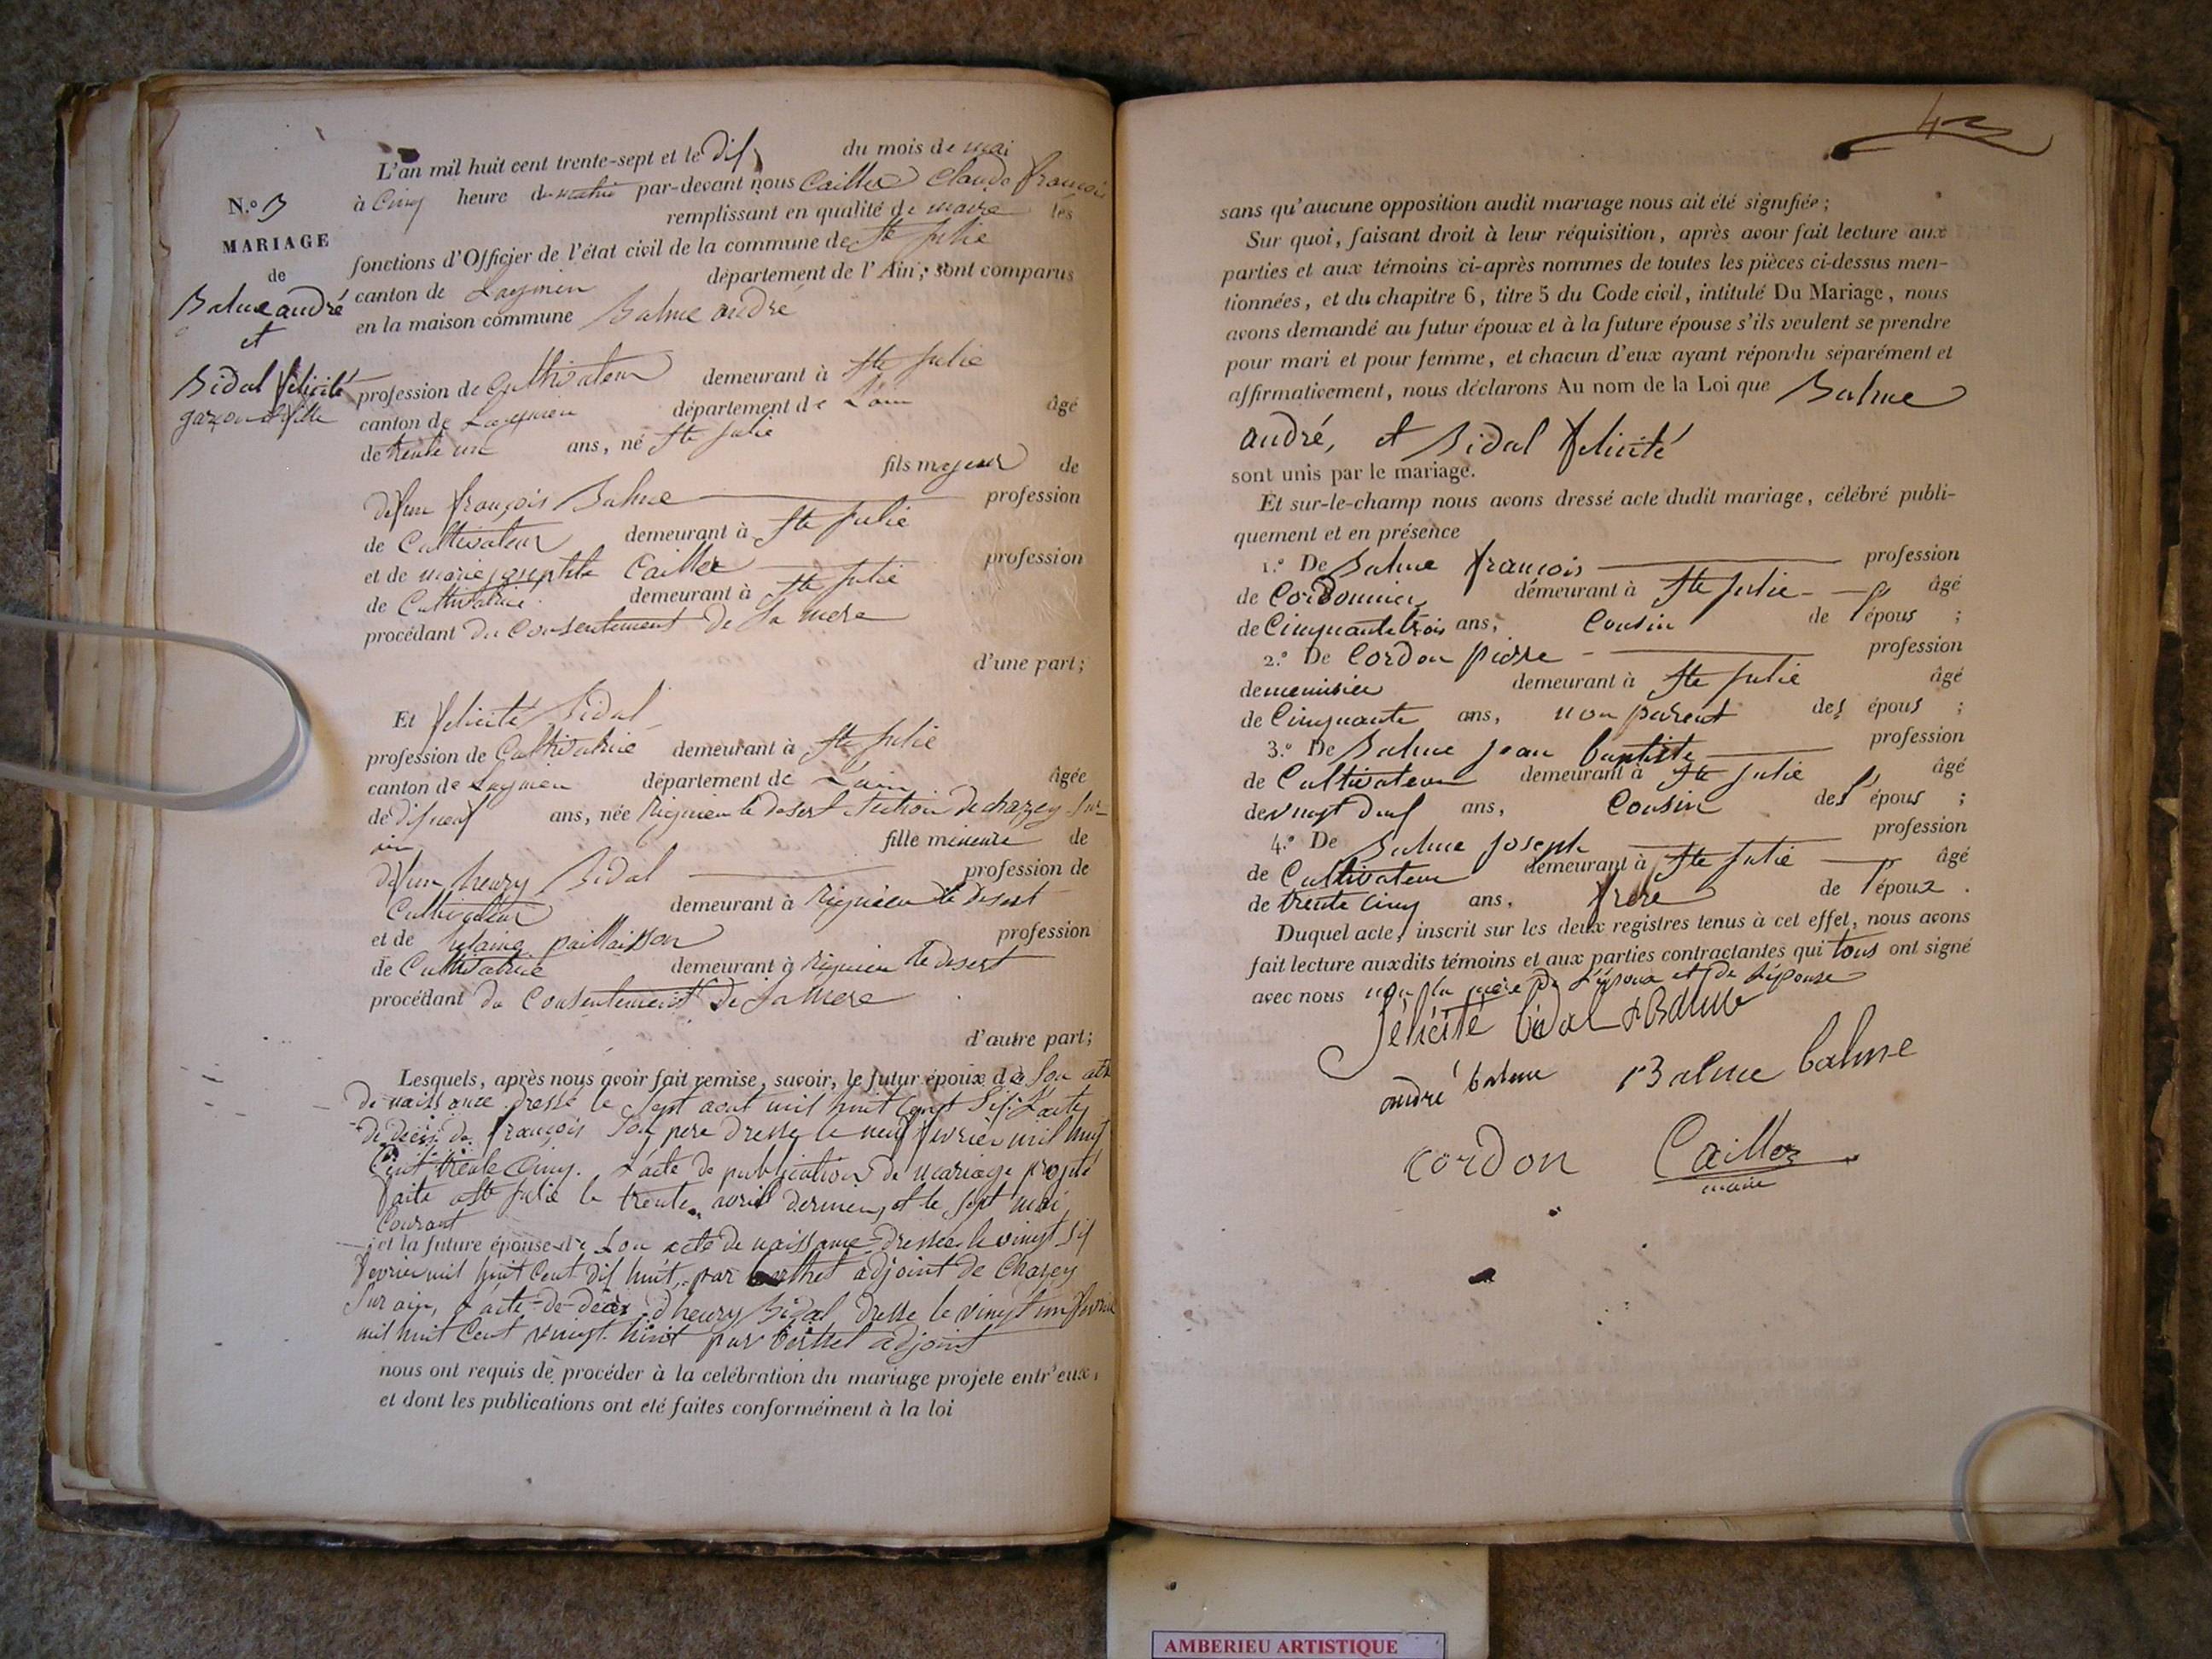 L'an mil huit cent trente-sept et le dix du mois de mai
à Cinq heure du matin par-devant nous Caillez Claude françois
remplissant en qualité de maire les
fonctions d'Officier de l'état civil de la commune de Ste julie
canton de Lagnieu département de l'Ain, sont comparus
en la maison commune Balme andré
N.°
MARIAGE
de
Balme andré
et
Bidal félicité
garçon et fille
profession de Cultivateur demeurant à Ste julie
canton de Lagnieu département de L'ain âgé
de trente un ans, né Ste julie
fils majeur de
defun françois Balme profession
de Cultivateur demeurant à Ste julie
et de marie josephte Caillez profession
de Cultivatrice demeurant à Ste julie
procédant du Consentement de Sa mere
d'une part;
Et felicité Bidal
profession de Cultivatrice demeurant à Ste julie
canton de Lagnieu département de L'ain âgée
de dix neuf ans, née Rignieu le desert Section de chazey Sur
ain fille mineure de
defun henry Bidal profession de
Cultivateur demeurant à Rignieu le desert
et de helaine paillaisson profession
de Cultivatrice demeurant à rignieu le desert
procédant du Consentement de Sa mere
d'autre part;
Lesquels, après nous avoir fait remise, savoir, le futur époux de Son acte
de naissance dressé le Sept aout mil huit Cent Six. L'acte
de deces de françois Son pere dressé le neuf fevrier mil huit
Cent trente Cinq. L'acte de publication de mariage projeté
faite a Ste julie le trente avril dernier, et le Sept mai
Courant
; et la future épouse de Son acte de naissance dressée le vingt Six
fevrier mil huit Cent dix huit, par berthet adjoint de Chazey
Sur ain, L'acte de deces d'henry Bidal dressé le vingt un fevrier
mil huit Cent vingt huit par berthet adjoint
nous ont requis de procéder à la celébration du mariage projete entr'eux,
et dont les publications ont eté faites conformément à la loi
42
sans qu'aucune opposition audit mariage nous ait été signifiée;
Sur quoi, faisant droit à leur réquisition, après avoir fait lecture aux
parties et aux témoins ci-après nommes de toutes les pièces ci-dessus men-
tionnées, et du chapitre 6, titre 5 du Code civil, intitulé Du Mariage, nous
avons demandé au futur époux et à la future épouse s'ils veulent se prendre
pour mari et pour femme, et chacun d'eux ayant répondu séparément et
affirmativement, nous déclarons Au nom de la Loi que Balme
andré, et Bidal felicité
sont unis par le mariage.
Et sur-le-champ nous avons dressé acte dudit mariage, célébré publi-
quement et en présence
1.° De Balme françois profession
de Cordonnier demeurant à Ste julie âgé
de Cinquante trois ans, Cousin de l'époux ;
2.° De Cordon pierre profession
de menuisier demeurant à Ste julie âgé
de Cinquante ans, non parent des époux ;
3.° De Balme jean baptiste profession
de Cultivateur demeurant à Ste julie âgé
de vingt deux ans, Cousin de l'époux ;
4.° De Balme joseph profession
de Cultivateur demeurant à Ste julie âgé
de trente cinq ans, frere de l'époux.
Duquel acte, inscrit sur les deux registres tenus à cet effet, nous avons
fait lecture auxdits témoins et aux parties contractantes qui tous ont signé
avec nous non la mere de L'époux et de L'épouse
félicité bidal Balme
andré balme Balme balme
cordon Caillez
maire
AMBERIEU ARTISTIQUE